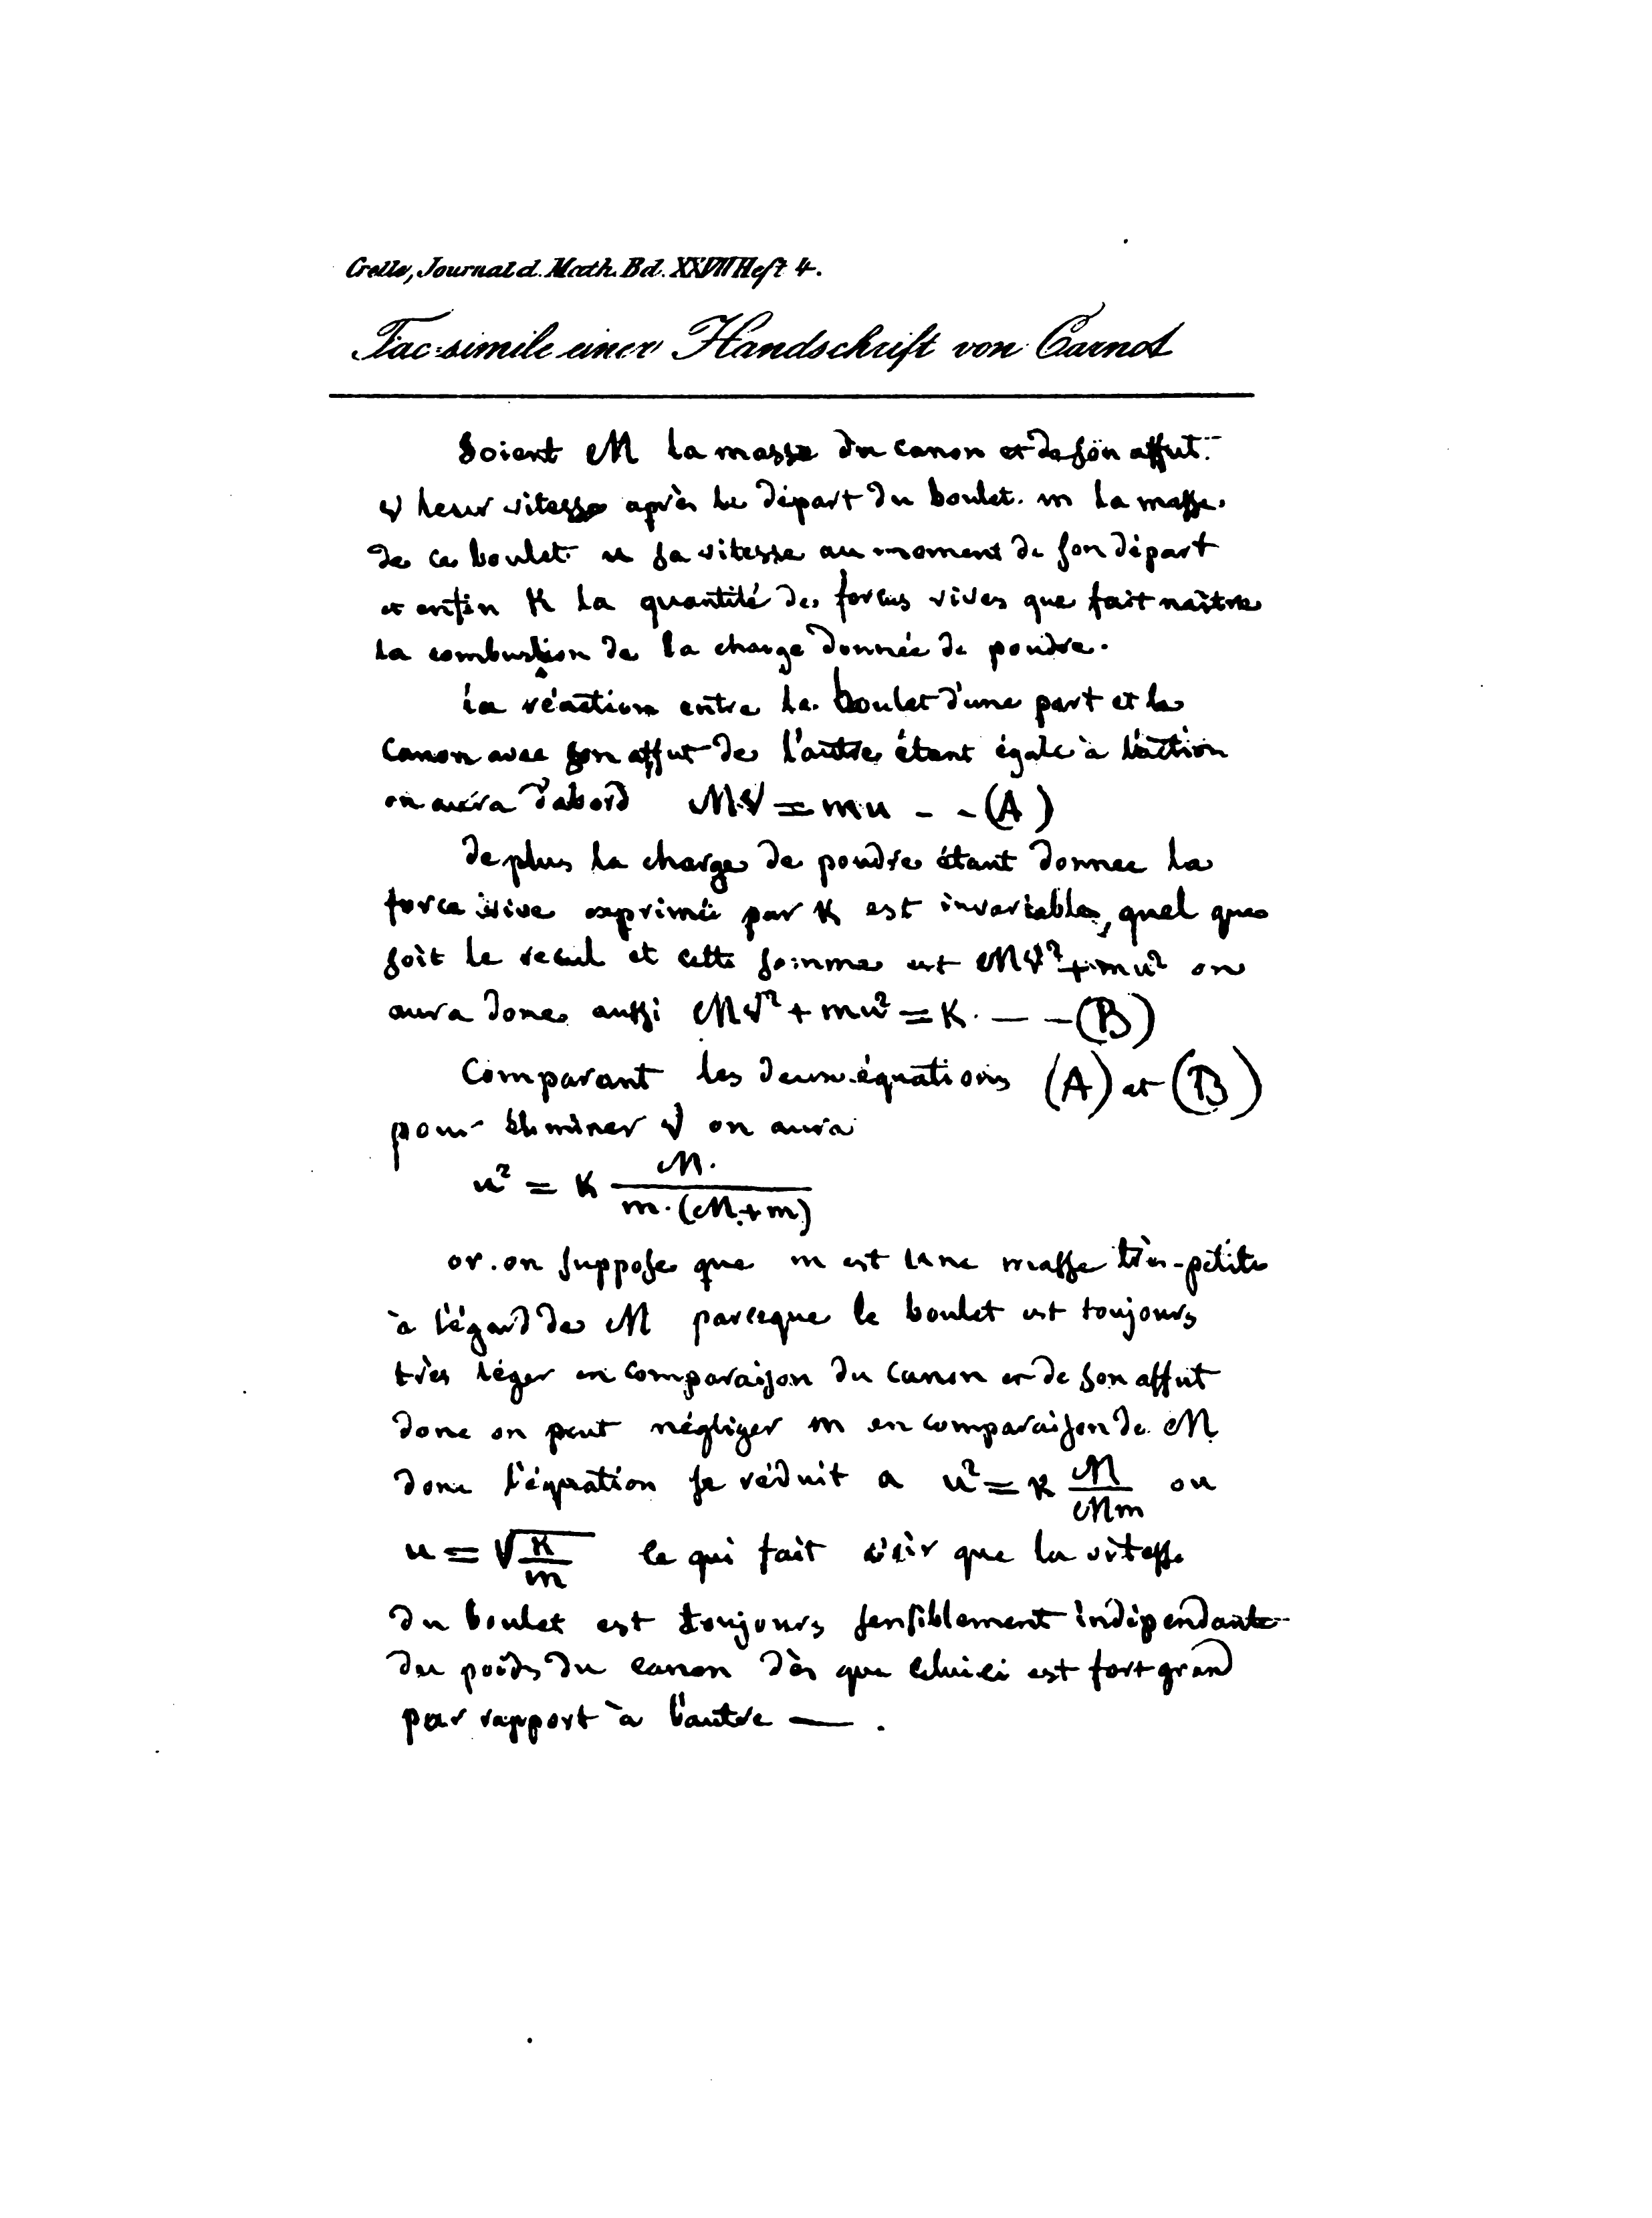 Crelle, Journal d. Math. Bd. XXVII Heft 4.
Fac-simile einer Handschrift von Carnot
Soient M la masse du canon et de son affut.
V leur vitesse après le départ du boulet. m la masse
de ce boulet u sa vitesse au moment de son départ
et enfin K la quantité des forces vives que fait naître
la combustion de la charge donnée de poudre.
La réaction entre le boulet d'une part et le
canon avec son affut de l'autre étant égale à l'action
on aura d'abord MV = mu - - (A)
de plus la charge de poudre étant donnee la
force vive exprimée par K est invariable, quel que
soit le recul et cette somme est MV² + mu² on
aura donc aussi MV² + mu² = K. — — (B)
Comparant les deux équations (A) et (B)
pour éliminer V on aura
u² = K M. / m.(M+m)
or. on suppose que m est une masse très-petite
à l'égard de M parceque le boulet est toujours
très léger en comparaison du canon et de son affut
donc on peut négliger m en comparaison de M
donc l'équation se réduit a u² = K M / Mm ou
u = √K/m ce qui fait voir que la vitesse
du boulet est toujours sensiblement indépendante
du poids du canon dès que celui ci est fort grand
par rapport à l'autre — .